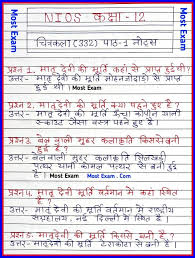 NIOS कक्षा-12
चित्रकला (332) पाठ-1 नोट्स
Most Exam
प्रश्न 1. मातृ देवी की मूर्ति कहां से प्राप्त हुई थी।
उत्तर- मातृ देवी की मूर्ति मोहनजोदाड़ो से प्राप्त हुई थी।
Most Exam
प्रश्न 2. मातृ देवी की मूर्ति क्या पहने हुए है?
उत्तर- मातृ देवी की मूर्ति
जैसा वस्त्र पहने हुए है।
Most Exam
प्रश्न 3. बैल वाली मुहर कलाकृति किससे बनी हुई है?
उत्तर- बैल वाली मुहर कलाकृति
पत्थर से बनी हुई है।
Most Exam Most Exam . Com
प्रश्न 4. मातृ देवी की मूर्ति वर्तमान में कहां स्थित है?
उत्तर- मातृदेवी की मूर्ति वर्तमान में राष्ट्रीय
संग्रहालय, नई दिल्ली में स्थित है।
Most Exam
प्रश्न 5. मातृदेवी की मूर्ति किससे बनी है?
उत्तर- मातृदेवी की मूर्ति